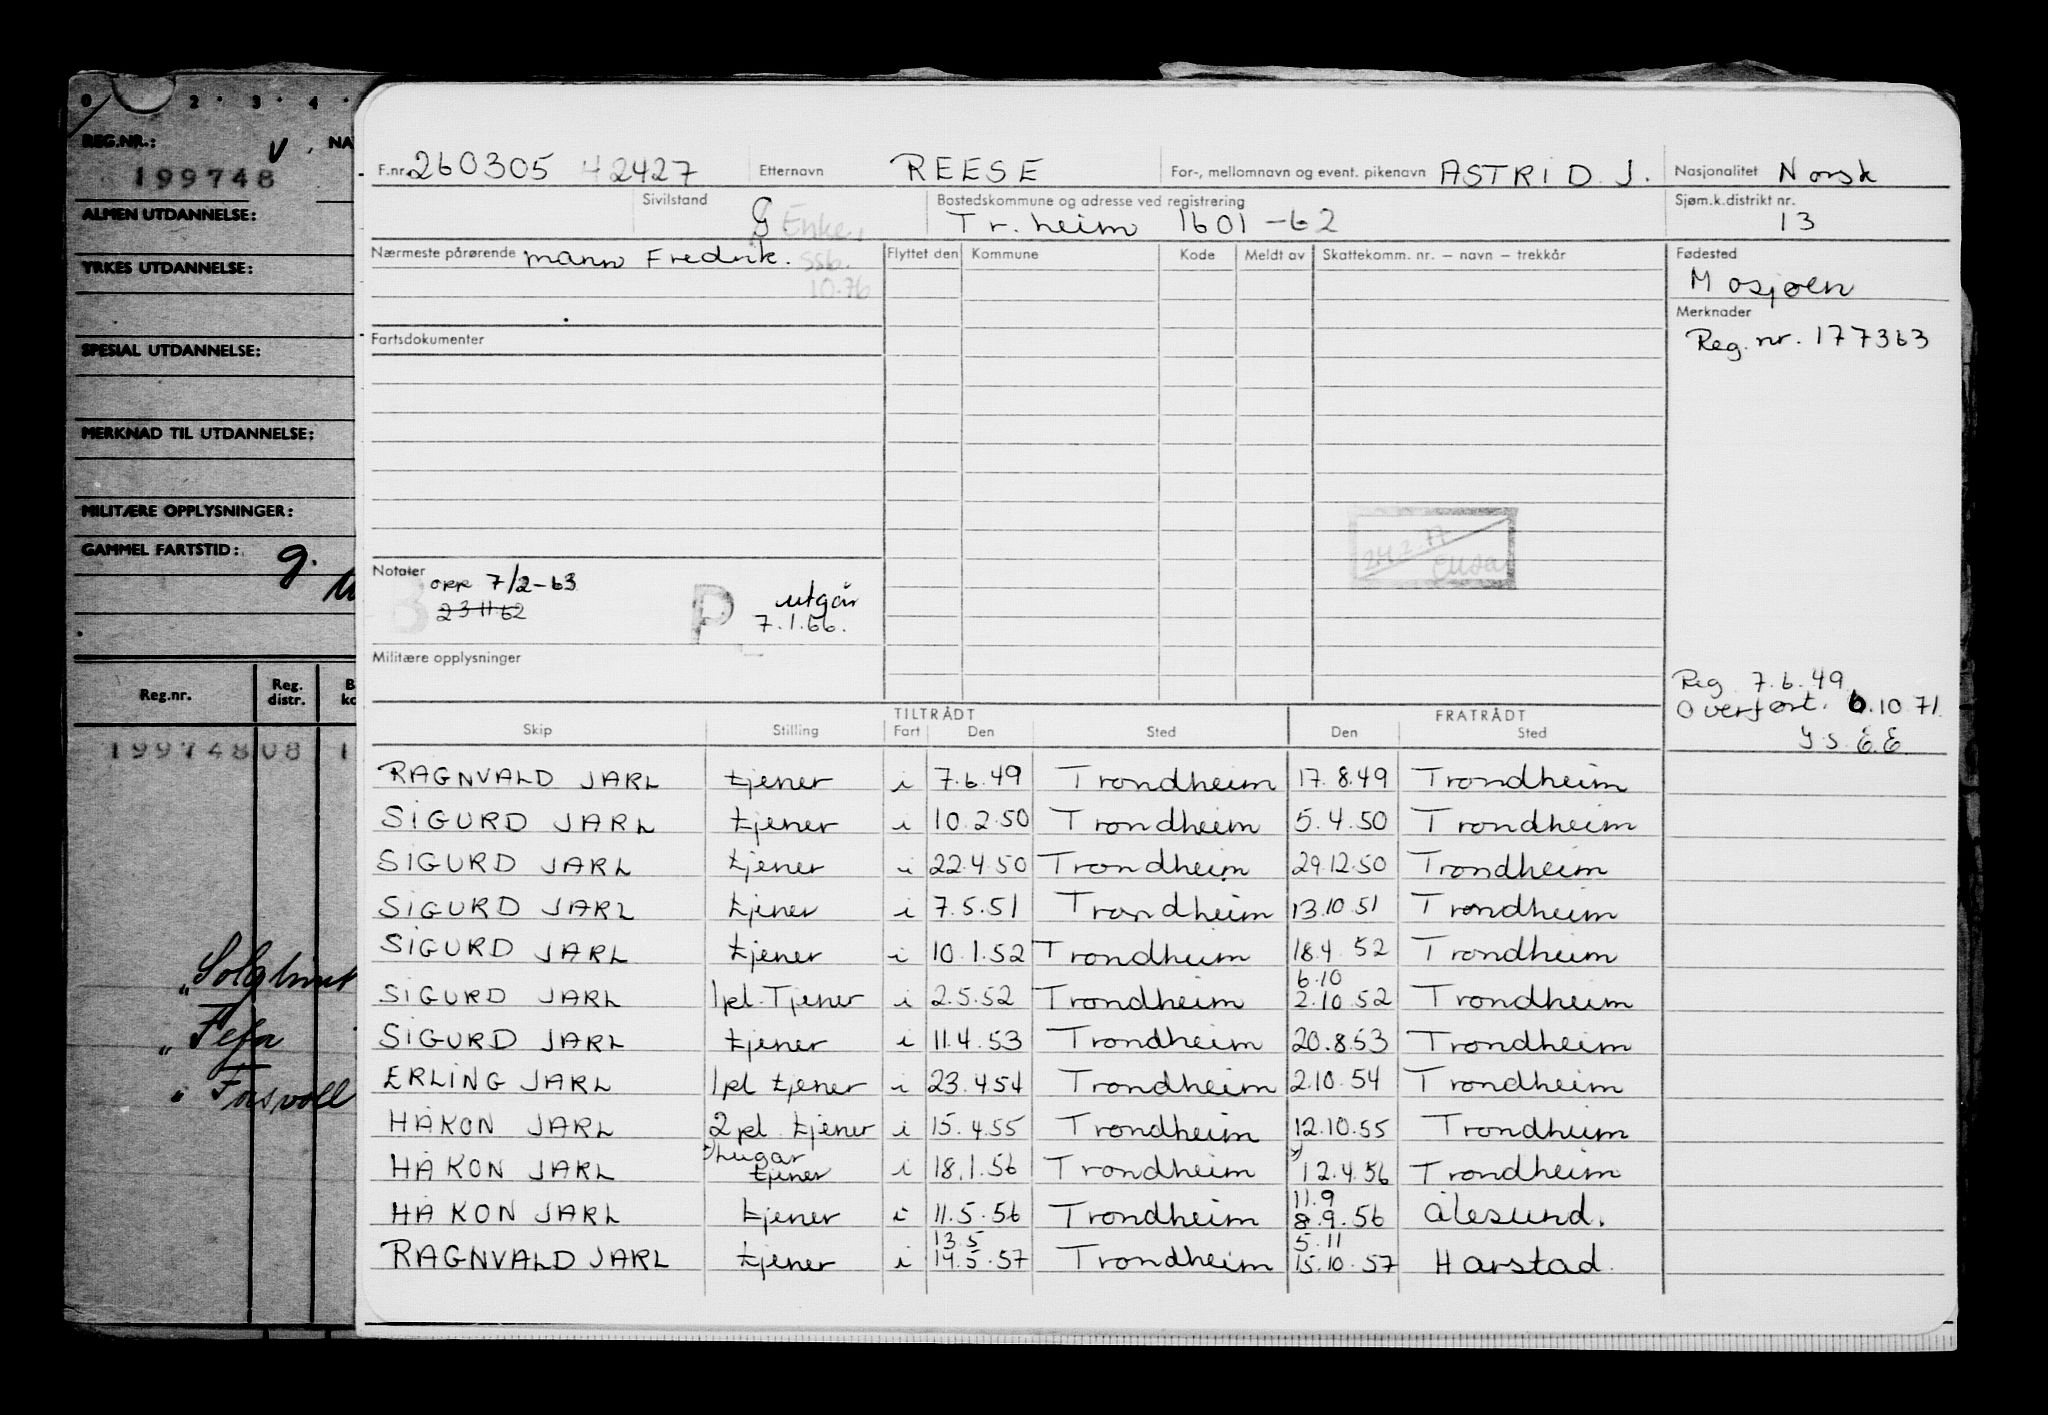 0 2 · 3 · 4 ·
REG.NR.: V
199748
ALMEN UTDANNELSE:
YRKES UTDANNELSE:
SPESIAL UTDANNELSE:
MERKNAD TIL UTDANNELSE:
MILITÆRE OPPLYSNINGER:
GAMMEL FARTSTID: g.
Reg.nr. Reg. distr.
199748 08 1
"Solglimt
" Fefa
F.nr. 260305 42427 Etternavn REESE For-, mellomnavn og event. pikenavn ASTRID J. Nasjonalitet Norsk
Sivilstand G Enke, Bostedskommune og adresse ved registrering Tr.heim 1601 -62 Sjøm.k.distrikt nr. 13
Nærmeste pårørende mann Fredrik. SSb. 10.76
Flyttet den Kommune Kode Meldt av Skattekomm. nr. – navn – trekkår
Fødested Mosjøen
Merknader
Reg. nr. 177363
Fartsdokumenter
Notater opp 7/2-63
23 11 62
P utgår
7.1.66.
24.2.77
Militære opplysninger
Reg 7.6.49
Overført. 6.10 71
y s E.E.
TILTRÅDT FRATRÅDT
Skip Stilling Fart Den Sted Den Sted
RAGNVALD JARL tjener i 7.6.49 Trondheim 17.8.49 Trondheim
SIGURD JARL tjener i 10.2.50 Trondheim 5.4.50 Trondheim
SIGURD JARL tjener i 22.4.50 Trondheim 29.12.50 Trondheim
SIGURD JARL tjener i 7.5.51 Trondheim 13.10 51 Trondheim
SIGURD JARL tjener i 10.1.52 Trondheim 18.4 52 Trondheim
6.10
SIGURD JARL 1pl. Tjener i 2.5.52 Trondheim 2.10.52 Trondheim
SIGURD JARL tjener i 11.4.53 Trondheim 20.8.53 Trondheim
ERLING JARL 1pl tjener i 23.4 54 Trondheim 2.10.54 Trondheim
HÅKON JARL 2pl. tjener i 15.4.55 Trondheim 12.10.55 Trondheim
HÅKON JARL lugar tjener i 18.1.56 Trondheim 12.4.56 Trondheim
11.9
HÅKON JARL tjener i 11.5.56 Trondheim 8.9.56 Ålesund.
13.5 5.11
RAGNVALD JARL tjener i 14.5.57 Trondheim 15.10.57 Harstad.